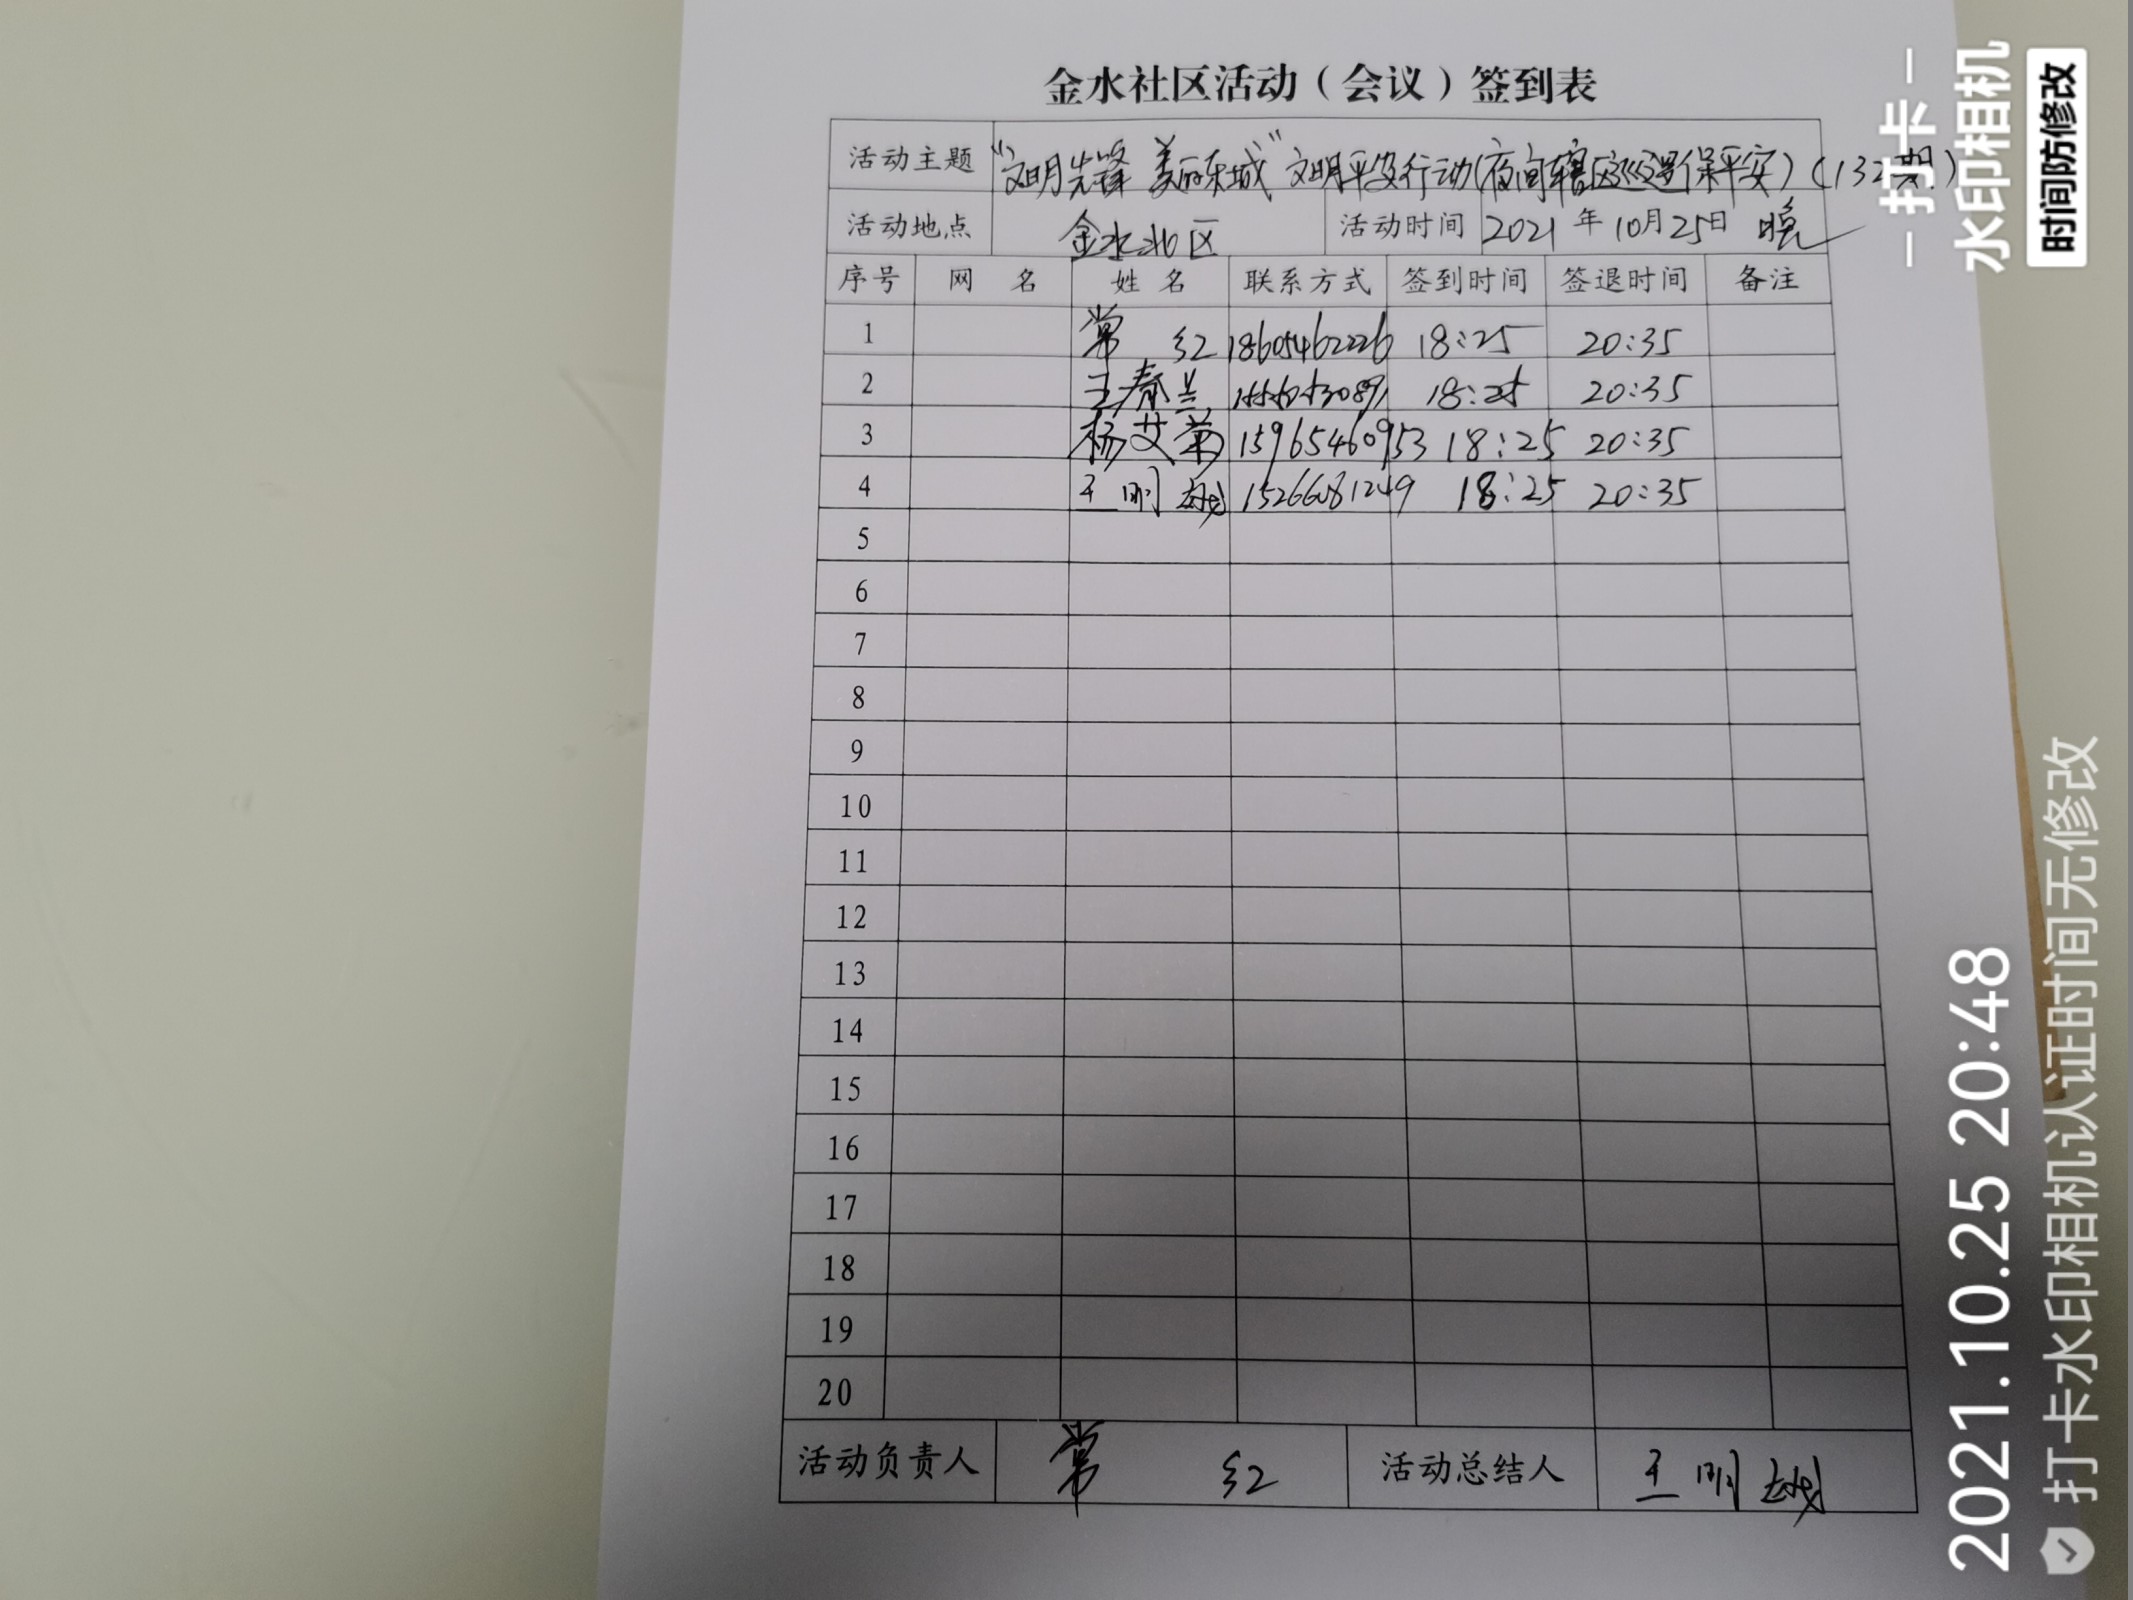 金水社区活动（会议）签到表
活动主题 "文明先锋 美丽东城"文明平安行动(夜间辖区巡逻保平安)(132期)
活动地点 金水北区 活动时间 2021年10月25日 晚
序号 网 名 姓 名 联系方式 签到时间 签退时间 备注
1 常 红 18605462226 18:25 20:35
2 王春兰 18:25 20:35
3 杨艾菊 15965460953 18:25 20:35
4 王明 18:25 20:35
5
6
7
8
9
10
11
12
13
14
15
16
17
18
19
20
活动负责人 常 红 活动总结人 王明
打卡
水印相机
时间防修改
2021.10.25 20:48
打卡水印相机认证时间无修改